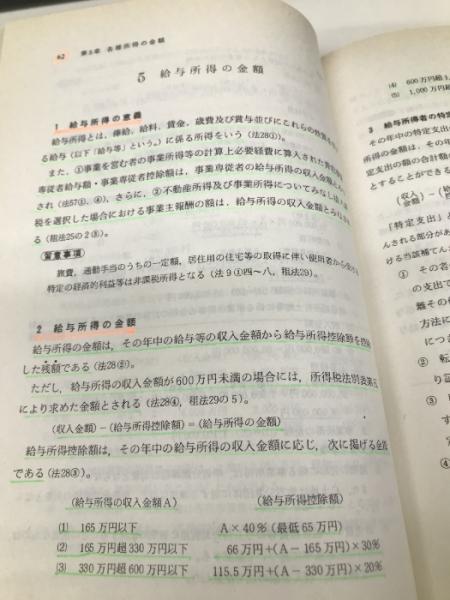 62 第3章 各種所得の金額
5 給与所得の金額
1 給与所得の意義
給与所得とは、俸給、給料、賃金、歳費及び賞与並びにこれらの性質を
る給与(以下「給与等」という。)に係る所得をいう(法28①)。
また、①事業を営む者の事業所得等の計算上必要経費に算入された青色
専従者給与額・事業専従者控除額は、事業専従者の給与所得の収入金額と
され(法57①、④)、さらに、②不動産所得及び事業所得についてみなし法人
税を選択した場合における事業主報酬の額は、給与所得の収入金額とみな
る(租法25の2③)。
留意事項
旅費、通勤手当のうちの一定額、居住用の住宅等の取得に伴い使用者から
特定の経済的利益等は非課税所得となる(法9①四~八、租法29)。
2 給与所得の金額
給与所得の金額は、その年中の給与等の収入金額から給与所得控除額を控除
した残額である(法28②)。
ただし、給与所得の収入金額が600万円未満の場合には、所得税法別表第
により求めた金額とされる(法28④、租法29の5)。
(収入金額)-(給与所得控除額)=(給与所得の金額)
給与所得控除額は、その年中の給与所得の収入金額に応じ、次に掲げる金額
である(法28③)。
(給与所得の収入金額A) (給与所得控除額)
(1) 165万円以下 A×40%(最低65万円)
(2) 165万円超330万円以下 66万円+(A-165万円)×30%
(3) 330万円超600万円以下 115.5万円+(A-330万円)×20%
(4) 600万円超
(5) 1,000万円
3 給与所得者の特定
その年中の特定支出
所得の金額は、その年
定支出の額の合計額
とすることができる
(収入金額)-(給
「特定支出」と
んされる部分があ
ける当該補てん
① その者
の支出で
難その
方法に
につき
② 転
り証
③
す
で
④